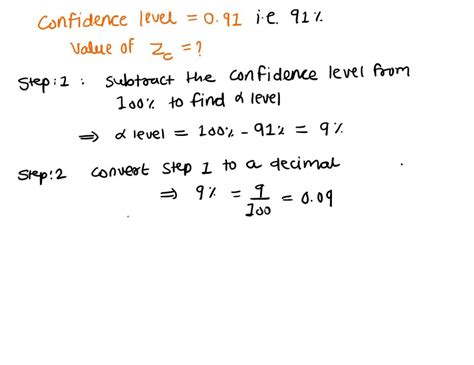 Confidence level = 0.91 i.e. 91%
Value of Zc = ?
Step:1 : Subtract the confidence level from
100% to find α level
⇒ α level = 100% - 91% = 9%
Step:2 convert step 1 to a decimal
⇒ 9% = 9/100 = 0.09